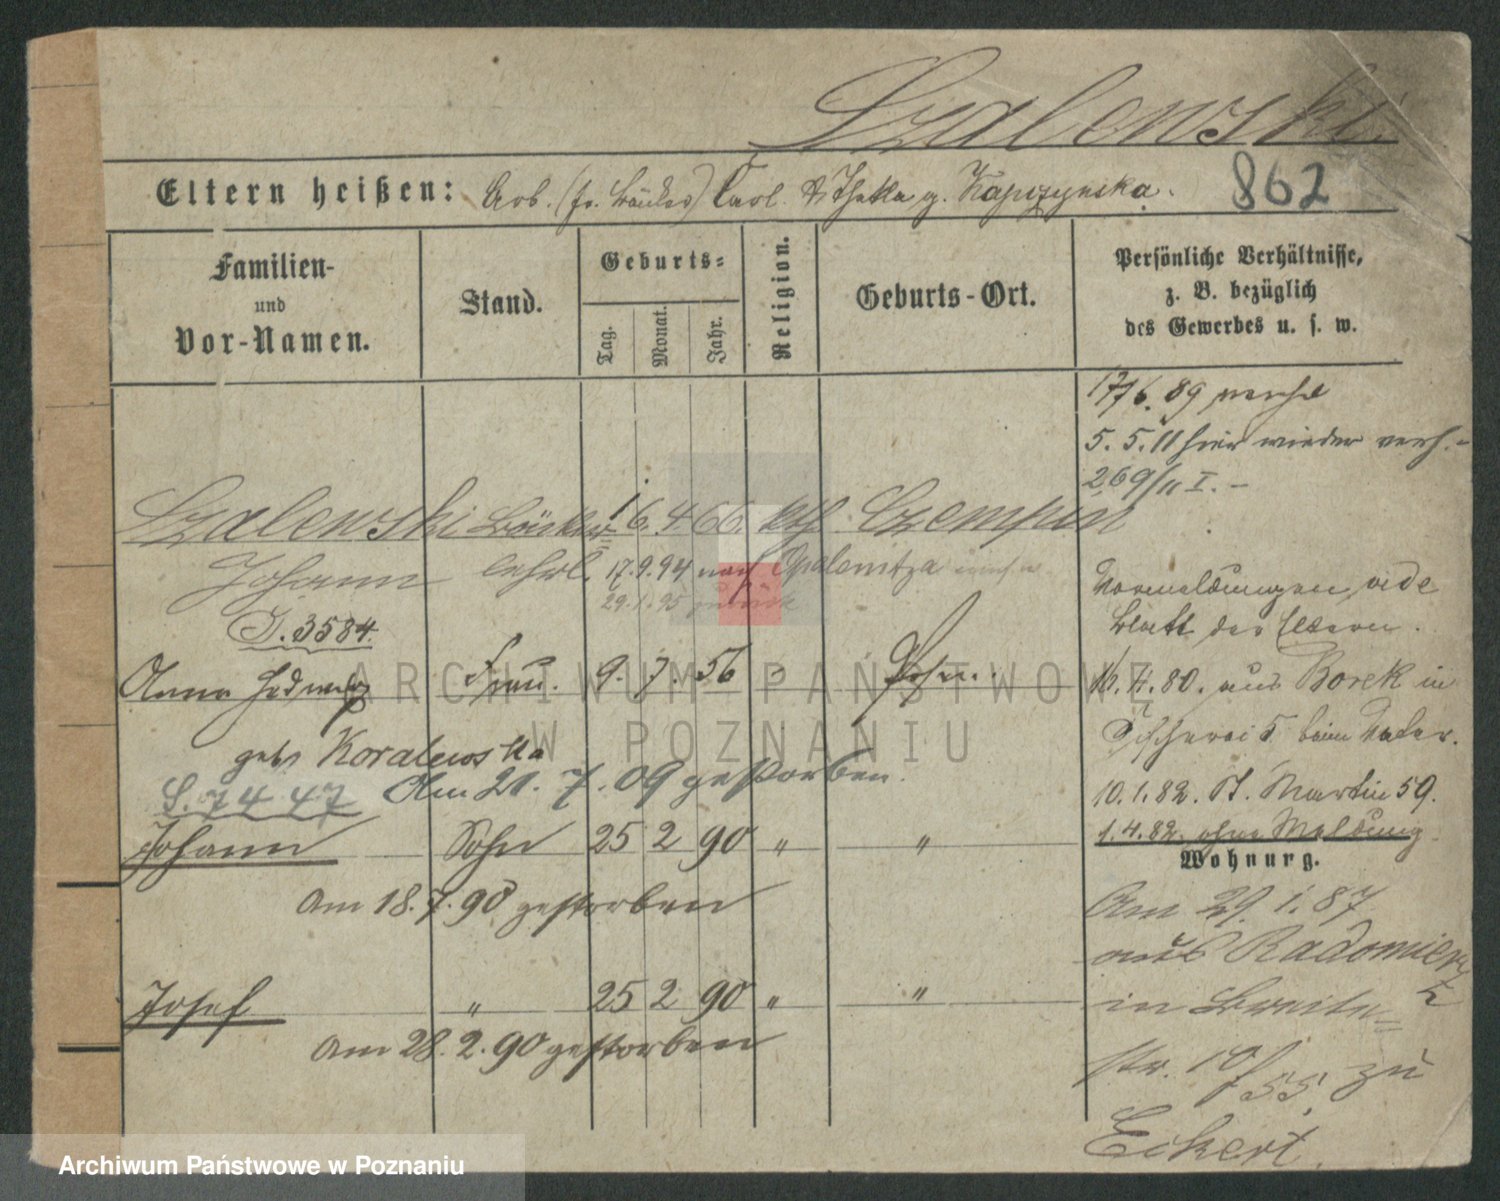 Szalewski
Eltern heißen: Arb. (fr. Bäcker) Carl & Thekla g. Kapczynska.
862
Familien-
und
Vor-Namen.
Stand.
Geburts-
Tag.
Monat.
Jahr.
Religion.
Geburts-Ort.
Persönliche Verhältnisse,
z. B. bezüglich
des Gewerbes u. s. w.
17/6. 89
5. 5. 11 hier wieder verh.-
269/11 I. -
Szalewski Bäcker 16. 4. 66. kth Czempin
Johann lehrl. 17.9.94 nach Opalenitza
29.1.95 zurück
J. 3584.
Vormeldungen vide
Blatt der Eltern.
Anna Hedwig Frau. 9. 7. 56 " Posen.
geb. Koralewska
S. 7447 Am 21. 7. 09 gestorben.
11.80. aus Borek in
Fischerei 5 beim Vater.
10.1.82. St. Martin 59.
1.4.82. ohne Meldung.
Johann Sohn 25 2 90 " "
Am 18.7.90 gestorben
Josef " 25 2 90 " "
Am 28.2.90 gestorben
Wohnung.
Am 29. 1. 87
aus Radomierz
in Breite-
str. 10/55. zu
Eckert.
ARCHIWUM PAŃSTWOWE
W POZNANIU
Archiwum Państwowe w Poznaniu